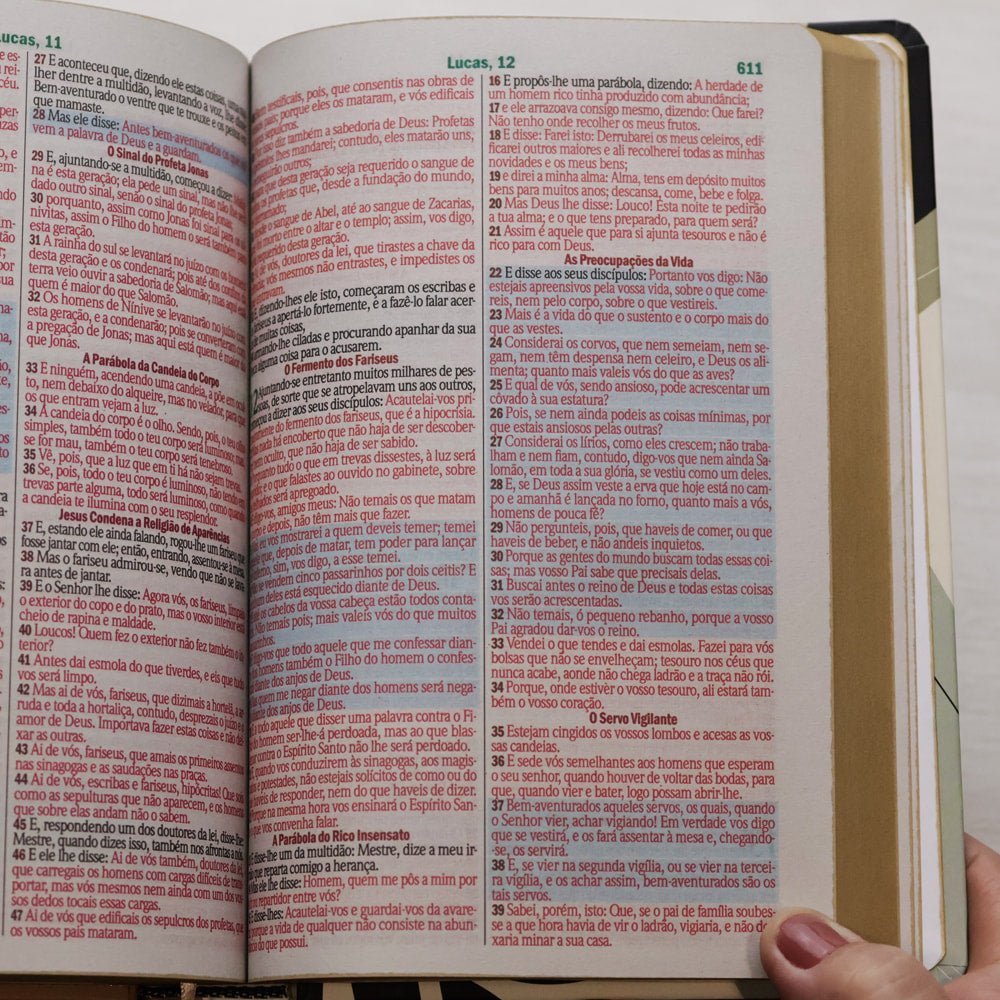 Lucas, 11
27 E aconteceu que, dizendo ele estas coisas, uma
lher dentre a multidão, levantando a voz, lhe
Bem-aventurado o ventre que te trouxe e os peitos
que mamaste.
28 Mas ele disse: Antes bem-aventurados os
vem a palavra de Deus e a guardam.
O Sinal do Profeta Jonas
29 E, ajuntando-se a multidão, começou a dizer:
na é esta geração; ela pede um sinal, mas não lhe
dado outro sinal, senão o sinal do profeta Jonas;
30 porquanto, assim como Jonas foi sinal para os
nivitas, assim o Filho do homem o será também para
esta geração.
31 A rainha do sul se levantará no juízo com os homens
desta geração e os condenará; pois até dos confins da
terra veio ouvir a sabedoria de Salomão; mas aqui está
quem é maior do que Salomão.
32 Os homens de Nínive se levantarão no juízo com
esta geração, e a condenarão; pois se converteram com
a pregação de Jonas; mas aqui está quem é maior do
que Jonas.
A Parábola da Candeia do Corpo
33 E ninguém, acendendo uma candeia, a põe em oculto,
to, nem debaixo do alqueire, mas no velador, para que
os que entram vejam a luz.
34 A candeia do corpo é o olho. Sendo, pois, o teu olho
simples, também todo o teu corpo será luminoso; mas
se for mau, também o teu corpo será tenebroso.
35 Vê, pois, que a luz que em ti há não sejam trevas.
36 Se, pois, todo o teu corpo é luminoso, não tendo em
trevas parte alguma, todo será luminoso, como quando
a candeia te ilumina com o seu resplendor.
Jesus Condena a Religião de Aparências
37 E, estando ele ainda falando, rogou-lhe um fariseu que
fosse jantar com ele; então, entrando, assentou-se à mesa.
38 Mas o fariseu admirou-se, vendo que não se lava-
ra antes de jantar.
39 E o Senhor lhe disse: Agora vós, os fariseus, limpais
o exterior do copo e do prato, mas o vosso interior está
cheio de rapina e maldade.
40 Loucos! Quem fez o exterior não fez também o in-
terior?
41 Antes dai esmola do que tiverdes, e eis que tudo
vos será limpo.
42 Mas ai de vós, fariseus, que dizimais a hortelã, a ar-
ruda e toda a hortaliça, contudo, desprezais o juízo e o
amor de Deus. Importava fazer estas coisas e não dei-
xar as outras.
43 Ai de vós, fariseus, que amais os primeiros assentos
nas sinagogas e as saudações nas praças.
44 Ai de vós, escribas e fariseus, hipócritas! Que sois
como as sepulturas que não aparecem, e os homens
que sobre elas andam não o sabem.
45 E, respondendo um dos doutores da lei, disse-lhe:
Mestre, quando dizes isso, também nos afrontas a nós.
46 E ele lhe disse: Ai de vós também, doutores da lei,
que carregais os homens com cargas difíceis de trans-
portar, mas vós mesmos nem ainda com um dos vos-
sos dedos tocais essas cargas.
47 Ai de vós que edificais os sepulcros dos profetas, que
os vossos pais mataram.
Lucas, 12
611
testificais, pois, que consentis nas obras de
pais; porque eles os mataram, e vós edificais
sepulcros.
isso diz também a sabedoria de Deus: Profetas
lhes mandarei; contudo, eles matarão uns,
outros;
que desta geração seja requerido o sangue de
os profetas que, desde a fundação do mundo,
o sangue de Abel, até ao sangue de Zacarias,
morto entre o altar e o templo; assim, vos digo,
requerido desta geração.
de vós, doutores da lei, que tirastes a chave da
vós mesmos não entrastes, e impedistes os
E, dizendo-lhes ele isto, começaram os escribas e
fariseus a apertá-lo fortemente, e a fazê-lo falar acer-
de muitas coisas,
armando-lhe ciladas e procurando apanhar da sua
alguma coisa para o acusarem.
O Fermento dos Fariseus
Ajuntando-se entretanto muitos milhares de pes-
soas, de sorte que se atropelavam uns aos outros,
começou a dizer aos seus discípulos: Acautelai-vos pri-
meiramente do fermento dos fariseus, que é a hipocrisia.
nada há encoberto que não haja de ser descober-
nem oculto, que não haja de ser sabido.
Porquanto tudo o que em trevas dissestes, à luz será
e o que falastes ao ouvido no gabinete, sobre
telhados será apregoado.
digo-vos, amigos meus: Não temais os que matam
corpo e depois, não têm mais que fazer.
eu vos mostrarei a quem deveis temer; temei
que, depois de matar, tem poder para lançar
inferno, sim, vos digo, a esse temei.
se vendem cinco passarinhos por dois ceitis? E
nem deles está esquecido diante de Deus.
até os cabelos da vossa cabeça estão todos conta-
Não temais pois; mais valeis vós do que muitos
digo-vos que todo aquele que me confessar dian-
dos homens também o Filho do homem o confes-
diante dos anjos de Deus.
quem me negar diante dos homens será nega-
diante dos anjos de Deus.
a todo aquele que disser uma palavra contra o Fi-
do homem ser-lhe-á perdoada, mas ao que blas-
contra o Espírito Santo não lhe será perdoado.
E, quando vos conduzirem às sinagogas, aos magis-
e potestades, não estejais solícitos de como ou do
haveis de responder, nem do que haveis de dizer.
Porque na mesma hora vos ensinará o Espírito San-
que vos convenha falar.
A Parábola do Rico Insensato
E disse-lhe um da multidão: Mestre, dize a meu ir-
que reparta comigo a herança.
Mas ele lhe disse: Homem, quem me pôs a mim por
ou repartidor entre vós?
E disse-lhes: Acautelai-vos e guardai-vos da avare-
porque a vida de qualquer não consiste na abun-
do que possui.
16 E propôs-lhe uma parábola, dizendo: A herdade de
um homem rico tinha produzido com abundância;
17 e ele arrazoava consigo mesmo, dizendo: Que farei?
Não tenho onde recolher os meus frutos.
18 E disse: Farei isto: Derrubarei os meus celeiros, edi-
ficarei outros maiores e ali recolherei todas as minhas
novidades e os meus bens;
19 e direi a minha alma: Alma, tens em depósito muitos
bens para muitos anos; descansa, come, bebe e folga.
20 Mas Deus lhe disse: Louco! Esta noite te pedirão
a tua alma; e o que tens preparado, para quem será?
21 Assim é aquele que para si ajunta tesouros e não é
rico para com Deus.
As Preocupações da Vida
22 E disse aos seus discípulos: Portanto vos digo: Não
estejais apreensivos pela vossa vida, sobre o que come-
reis, nem pelo corpo, sobre o que vestireis.
23 Mais é a vida do que o sustento e o corpo mais do
que as vestes.
24 Considerai os corvos, que nem semeiam, nem se-
gam, nem têm despensa nem celeiro, e Deus os ali-
menta; quanto mais valeis vós do que as aves?
25 E qual de vós, sendo ansioso, pode acrescentar um
côvado à sua estatura?
26 Pois, se nem ainda podeis as coisas mínimas, por
que estais ansiosos pelas outras?
27 Considerai os lírios, como eles crescem; não traba-
lham e nem fiam, contudo, digo-vos que nem ainda Sa-
lomão, em toda a sua glória, se vestiu como um deles.
28 E, se Deus assim veste a erva que hoje está no cam-
po e amanhã é lançada no forno, quanto mais a vós,
homens de pouca fé?
29 Não pergunteis, pois, que haveis de comer, ou que
haveis de beber, e não andeis inquietos.
30 Porque as gentes do mundo buscam todas essas coi-
sas; mas vosso Pai sabe que precisais delas.
31 Buscai antes o reino de Deus e todas estas coisas
vos serão acrescentadas.
32 Não temais, ó pequeno rebanho, porque a vosso
Pai agradou dar-vos o reino.
33 Vendei o que tendes e dai esmolas. Fazei para vós
bolsas que não se envelheçam; tesouro nos céus que
nunca acabe, aonde não chega ladrão e a traça não rói.
34 Porque, onde estiver o vosso tesouro, ali estará tam-
bém o vosso coração.
O Servo Vigilante
35 Estejam cingidos os vossos lombos e acesas as vos-
sas candeias.
36 E sede vós semelhantes aos homens que esperam
o seu senhor, quando houver de voltar das bodas, para
que, quando vier e bater, logo possam abrir-lhe.
37 Bem-aventurados aqueles servos, os quais, quando
o Senhor vier, achar vigiando! Em verdade vos digo
que se vestirá, e os fará assentar à mesa e, chegando-
-se, os servirá.
38 E, se vier na segunda vigília, ou se vier na tercei-
ra vigília, e os achar assim, bem-aventurados são os
tais servos.
39 Sabei, porém, isto: Que, se o pai de família soubes-
se a que hora havia de vir o ladrão, vigiaria, e não
xaria minar a sua casa.